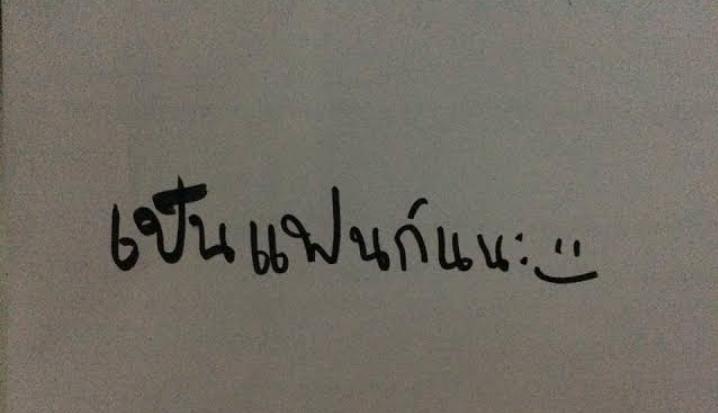 เป็นแฟนกันนะ